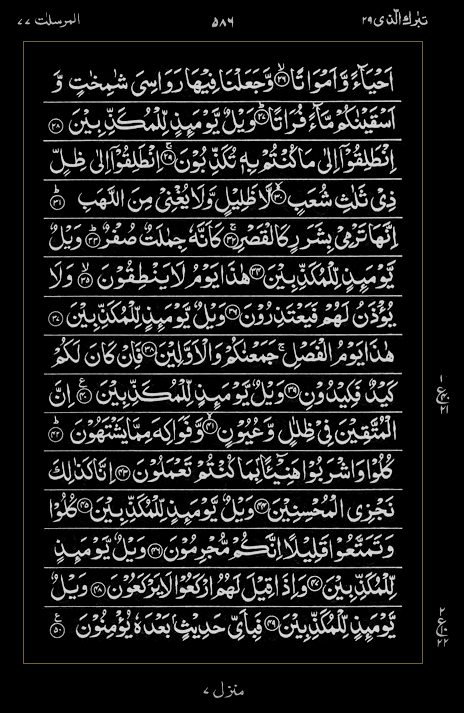 تبٰرك الذی ٢٩ ۵۸۶ المرسلت ٧٧
اَحْيَآءً وَّاَمْوَاتًا ﴿۲۶﴾ وَّجَعَلْنَا فِيْهَا رَوَاسِیَ شٰمِخٰتٍ وَّ
اَسْقَيْنٰكُمْ مَّآءً فُرَاتًا ﴿۲۷﴾ وَيْلٌ يَّوْمَىِٕذٍ لِّلْمُكَذِّبِيْنَ ﴿۲۸﴾
اِنْطَلِقُوْٓا اِلٰی مَا كُنْتُمْ بِهٖ تُكَذِّبُوْنَ ﴿۲۹﴾ اِنْطَلِقُوْٓا اِلٰی ظِلٍّ
ذِیْ ثَلٰثِ شُعَبٍ ﴿۳۰﴾ لَّا ظَلِيْلٍ وَّلَا يُغْنِیْ مِنَ اللَّهَبِ ﴿۳۱﴾
اِنَّهَا تَرْمِیْ بِشَرَرٍ كَالْقَصْرِ ﴿۳۲﴾ كَاَنَّهٗ جِمٰلَتٌ صُفْرٌ ﴿۳۳﴾ وَيْلٌ
يَّوْمَىِٕذٍ لِّلْمُكَذِّبِيْنَ ﴿۳۴﴾ هٰذَا يَوْمُ لَا يَنْطِقُوْنَ ﴿۳۵﴾ وَلَا
يُؤْذَنُ لَهُمْ فَيَعْتَذِرُوْنَ ﴿۳۶﴾ وَيْلٌ يَّوْمَىِٕذٍ لِّلْمُكَذِّبِيْنَ ﴿۳۷﴾
هٰذَا يَوْمُ الْفَصْلِ ۚ جَمَعْنٰكُمْ وَالْاَوَّلِيْنَ ﴿۳۸﴾ فَاِنْ كَانَ لَكُمْ
كَيْدٌ فَكِيْدُوْنِ ﴿۳۹﴾ وَيْلٌ يَّوْمَىِٕذٍ لِّلْمُكَذِّبِيْنَ ﴿۴۰﴾ اِنَّ
الْمُتَّقِيْنَ فِیْ ظِلٰلٍ وَّعُيُوْنٍ ﴿۴۱﴾ وَّفَوَاكِهَ مِمَّا يَشْتَهُوْنَ ﴿۴۲﴾
كُلُوْا وَاشْرَبُوْا هَنِيْٓئًۢا بِمَا كُنْتُمْ تَعْمَلُوْنَ ﴿۴۳﴾ اِنَّا كَذٰلِكَ
نَجْزِی الْمُحْسِنِيْنَ ﴿۴۴﴾ وَيْلٌ يَّوْمَىِٕذٍ لِّلْمُكَذِّبِيْنَ ﴿۴۵﴾ كُلُوْا
وَتَمَتَّعُوْا قَلِيْلًا اِنَّكُمْ مُّجْرِمُوْنَ ﴿۴۶﴾ وَيْلٌ يَّوْمَىِٕذٍ
لِّلْمُكَذِّبِيْنَ ﴿۴۷﴾ وَاِذَا قِيْلَ لَهُمُ ارْكَعُوْا لَا يَرْكَعُوْنَ ﴿۴۸﴾ وَيْلٌ
يَّوْمَىِٕذٍ لِّلْمُكَذِّبِيْنَ ﴿۴۹﴾ فَبِاَیِّ حَدِيْثٍۭ بَعْدَهٗ يُؤْمِنُوْنَ ﴿۵۰﴾
۱
ع ۴۰
۲۱
۲
ع ۱۰
۲۲
منزل ۷